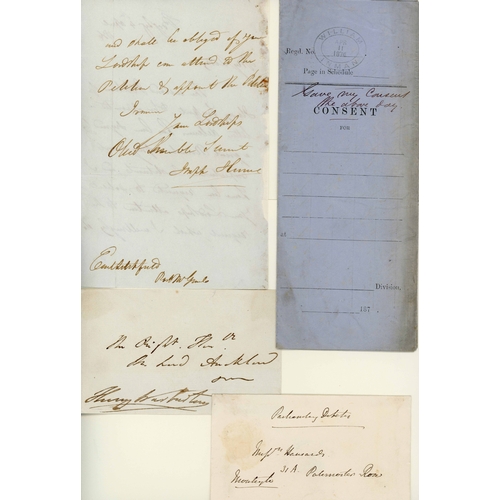 and shall be obliged if your
Lordship can attend to the
Petition & appoint the
I remain
Your Lordships
Obed Humble Servt
Joseph Hume
Earl Lichfield
Post Mr Genl
The Right Hon
the Lord Auckland
Henry Warburton
Regd. No.
Page in Schedule
Gave my Consent
the above day
CONSENT
FOR
at
Division,
187
Parliamentary Debates
Messrs Hansards
31 A. Paternoster Row
Monteagle